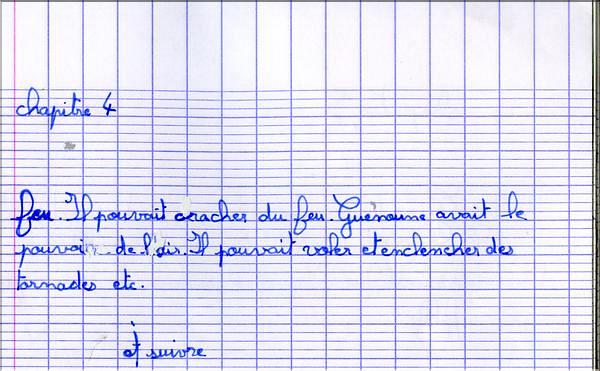 chapitre 4
feu. Il pouvait cracher du feu. Guénoune avait le
pouvoir de l'air. Il pouvait voler et enclencher des
tornades etc.
à suivre